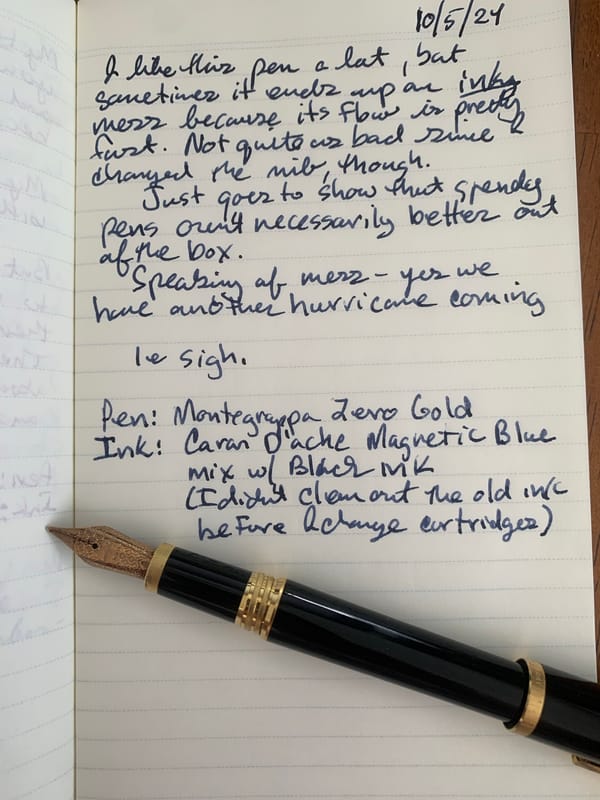 10/5/24
I like this pen a lot, but
sometimes it ends up an inky
mess because its flow is pretty
fast. Not quite as bad since I
changed the nib, though.
Just goes to show that spendy
pens aren't necessarily better out
of the box.
Speaking of mess - yes we
have another hurricane coming
le sigh.
Pen: Montegrappa Zero Gold
Ink: Caran D'ache Magnetic Blue
mix w/ Black ink
(I didn't clean out the old ink
before I change cartridges)